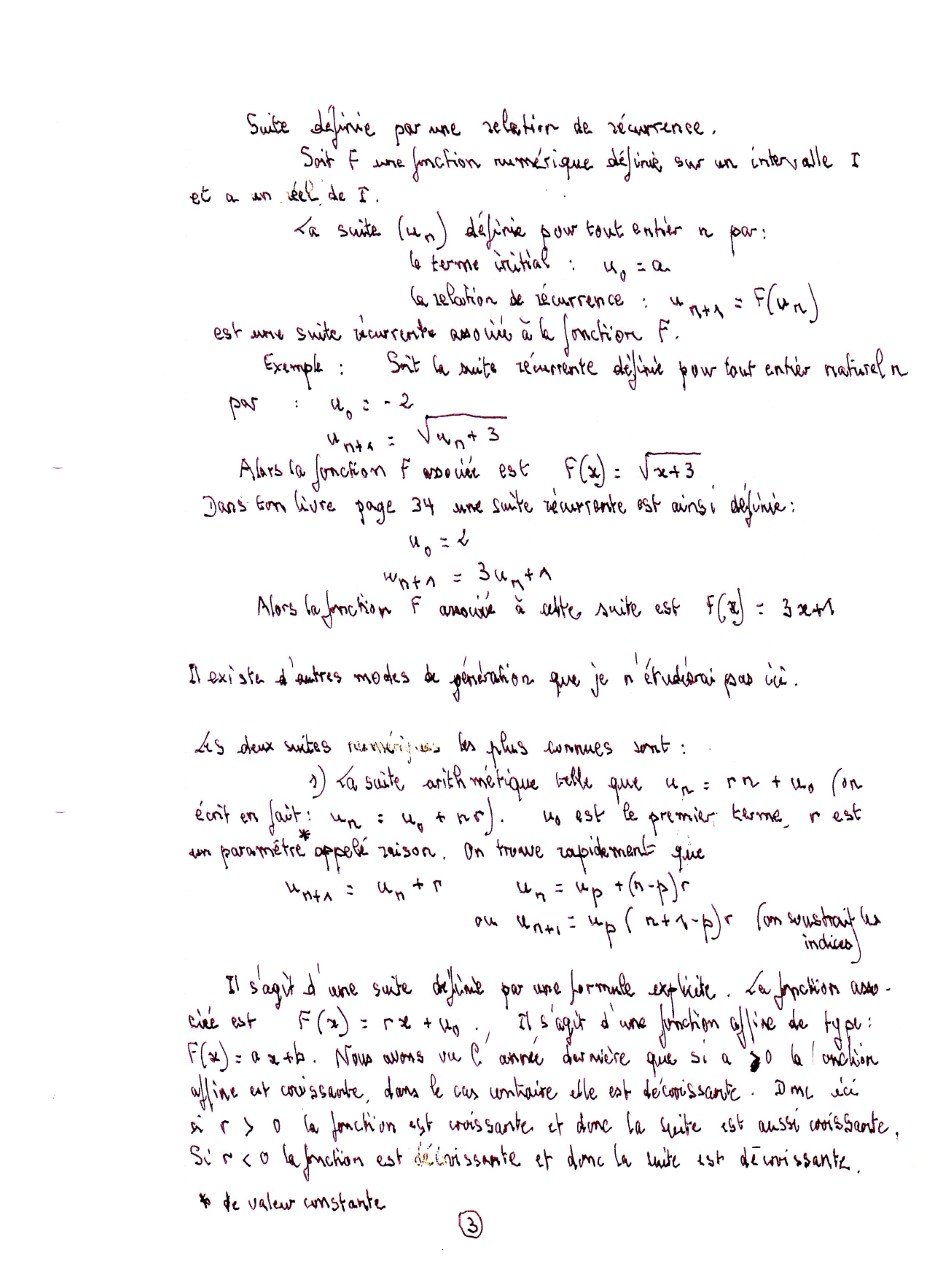 Suite définie par une relation de récurrence.
Soit F une fonction numérique définie sur un intervalle I
et a un réel de I.
La suite (uₙ) définie pour tout entier n par :
le terme initial : u₀ = a
la relation de récurrence : uₙ₊₁ = F(uₙ)
est une suite récurrente associée à la fonction F.
Exemple : Soit la suite récurrente définie pour tout entier naturel n
par : u₀ = -2
uₙ₊₁ = √(uₙ + 3)
Alors la fonction F associée est F(x) = √(x+3)
Dans ton livre page 34 une suite récurrente est ainsi définie :
u₀ = 2
uₙ₊₁ = 3uₙ + 1
Alors la fonction F associée à cette suite est F(x) = 3x+1
Il existe d'autres modes de génération que je n'étudierai pas ici.
Les deux suites numériques les plus connues sont :
1) La suite arithmétique telle que uₙ = rn + u₀ (on
écrit en fait : uₙ = u₀ + nr). u₀ est le premier terme, r est
un paramètre* appelé raison. On trouve rapidement que
uₙ₊₁ = uₙ + r uₙ = uₚ + (n-p)r
ou uₙ₊₁ = uₚ (n+1-p)r (on soustrait les
indices)
Il s'agit d'une suite définie par une formule explicite. La fonction asso-
ciée est F(x) = rx + u₀. Il s'agit d'une fonction affine de type :
F(x) = ax+b. Nous avons vu l'année dernière que si a > 0 la fonction
affine est croissante, dans le cas contraire elle est décroissante. Donc ici
si r > 0 la fonction est croissante et donc la suite est aussi croissante.
Si r < 0 la fonction est décroissante et donc la suite est décroissante.
* de valeur constante
3